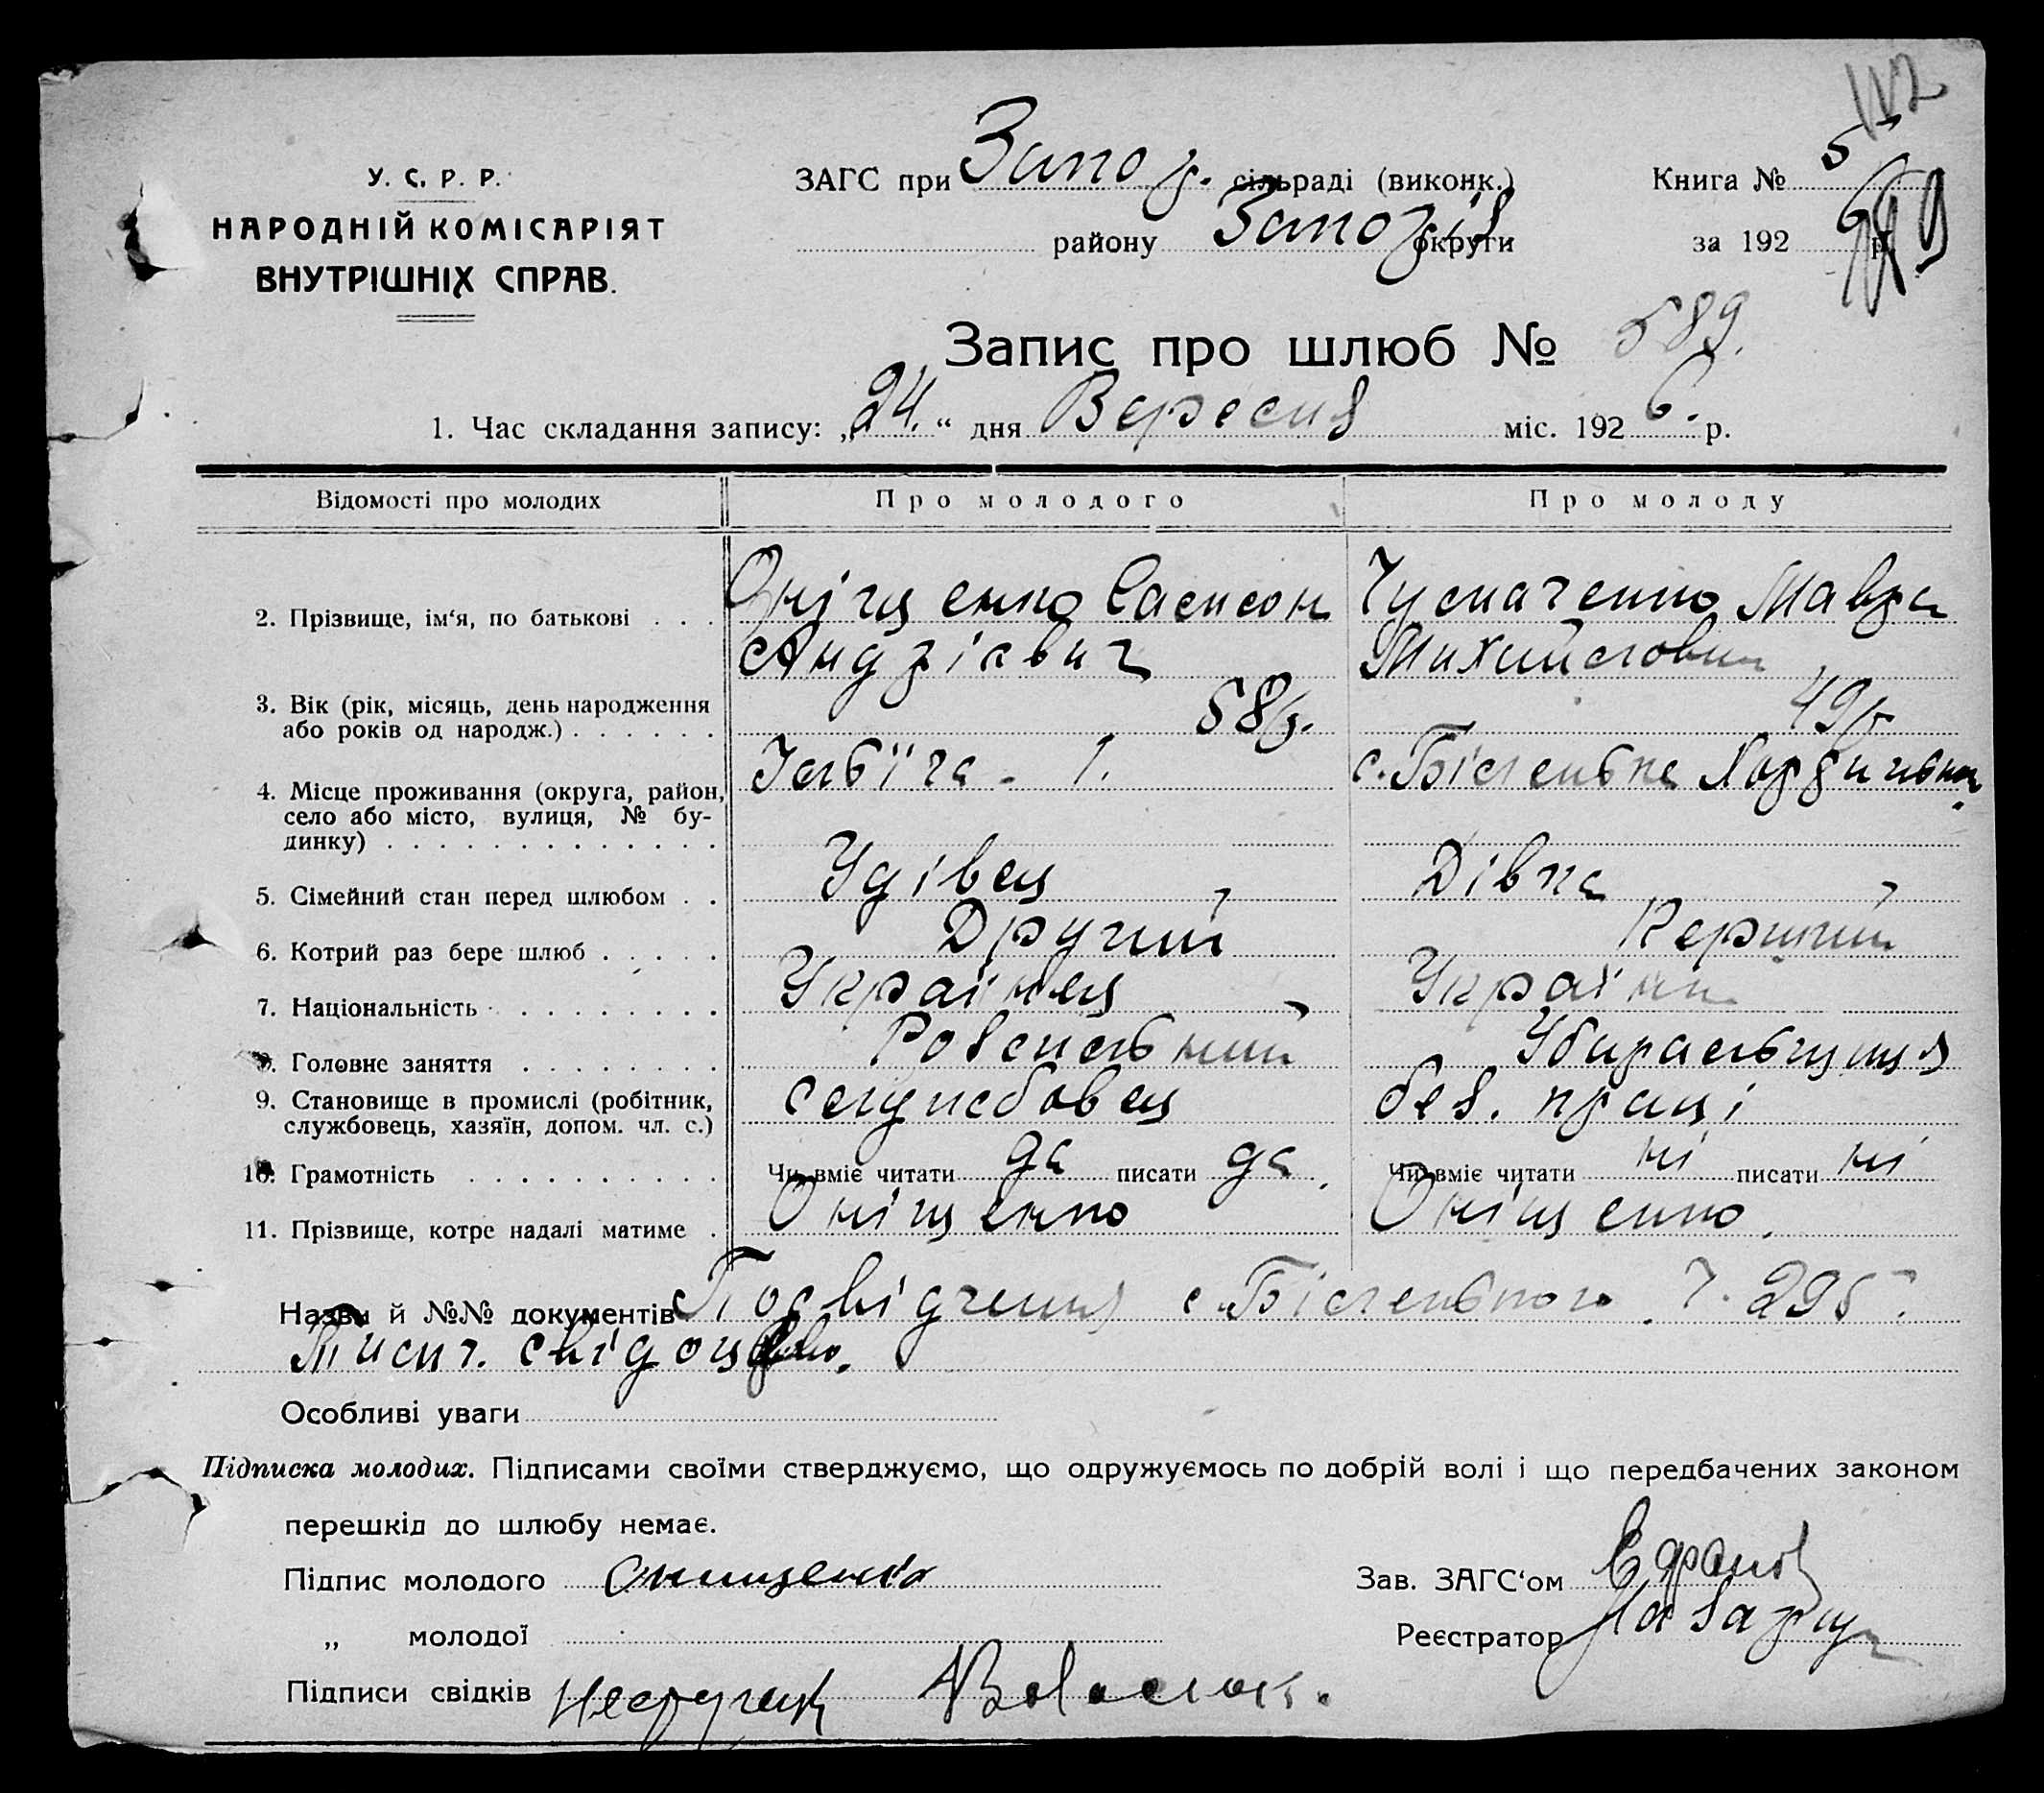 112
У. С. Р. Р.
НАРОДНІЙ КОМІСАРІЯТ
ВНУТРІШНІХ СПРАВ.
ЗАГС при Запор. сільраді (виконк.)
району Запоріз округи
Книга № 5
за 192 6 р.
Запис про шлюб № 589.
1. Час складання запису: „24.“ дня Вересня міс. 192 6. р.
Відомості про молодих
Про молодого
Про молоду
2. Прізвище, ім‘я, по батькові . . .
Оніщенко Самсон
Андрієвич
Мавра
Михайловна
3. Вік (рік, місяць, день народження
або років од народж.) . . . . . .
58 р.
49 р.
4. Місце проживання (округа, район,
село або місто, вулиця, № бу-
динку) . . . . . . . . . . . . .
1.
с. Біленьке
5. Сімейний стан перед шлюбом . .
Удівець
Дівка
6. Котрий раз бере шлюб . . . . .
Другий
Перший
7. Національність . . . . . . . . .
Українец
Українка
8. Головне заняття . . . . . . . .
9. Становище в промислі (робітник,
службовець, хазяїн, допом. чл. с.)
службовец
без. праці
10. Грамотність . . . . . . . . . .
Чи вміє читати да писати да
Чи вміє читати ні писати ні
11. Прізвище, котре надалі матиме .
Оніщенко
Оніщенко.
Назви й №№ документів Посвідчення с. Біленького ч. 295.
свідоцтво.
Особливі уваги
Підписка молодих. Підписами своїми стверджуємо, що одружуємось по добрій волі і що передбачених законом
перешкід до шлюбу немає.
Підпис молодого Онищенко
„ молодої
Зав. ЗАГС‘ом
Реєстратор
Підписи свідків